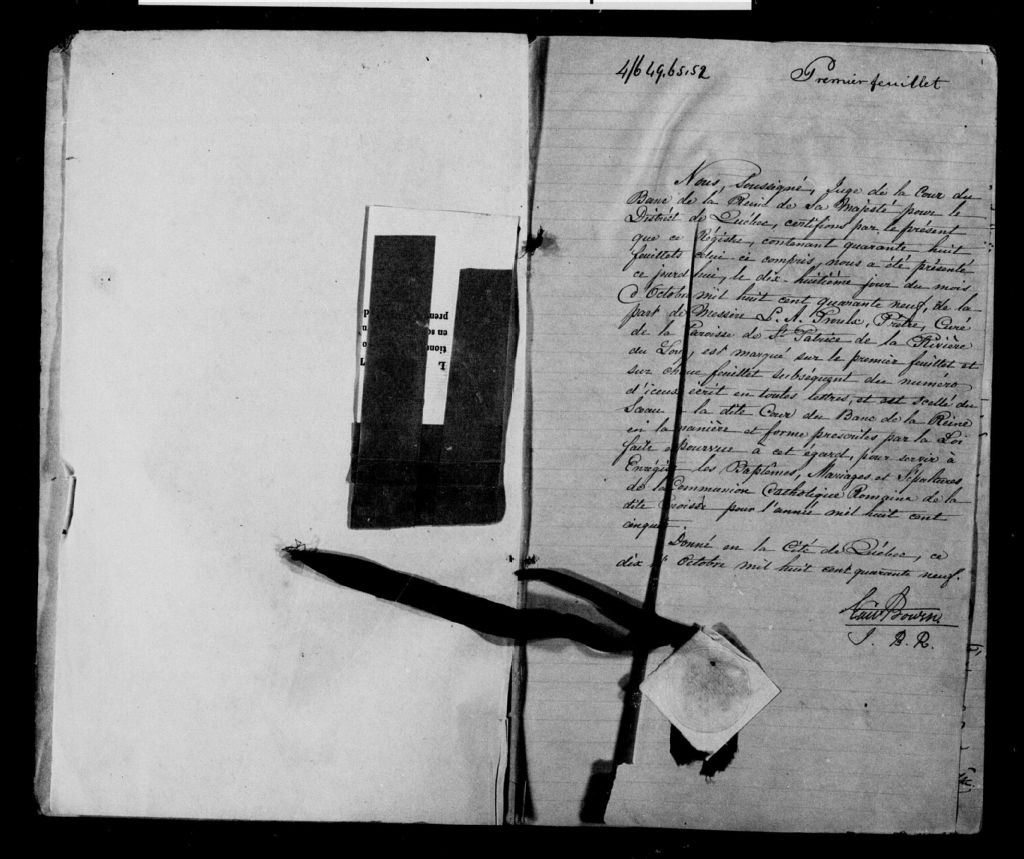 4/6 49.65.52
Premier feuillet
Nous, Soussigné, Juge de la Cour du
Banc de la Reine de Sa Majesté pour le
District de Québec, certifions par le présent
que ce Régistre, contenant quarante huit
feuillets celui ci compris, nous a été présenté
ce jourd'hui, le dix huitième jour du mois
d'Octobre mil huit cent quarante neuf, de la
part de Messire L. A. Proulx, Prêtre, Curé
de la Paroisse de St Patrice de la Rivière
du Loup, est marqué sur le premier feuillet et
sur chaque feuillet subséquent du numero
d'iceux écrit en toutes lettres, et est scellé du
Sceau de la dite Cour du Banc de la Reine
en la manière et forme prescrites par la Loi
faite et pourvue à cet égard, pour servir à
Enrégistrer les Baptêmes, Mariages et Sépultures
de la Communion Catholique Romaine de la
dite Paroisse pour l'année mil huit cent
cinquante
Donné en la Cité de Québec, ce
dix Octobre mil huit cent quarante neuf.
Bowen
J. B. R.
en so
pren
tions
L